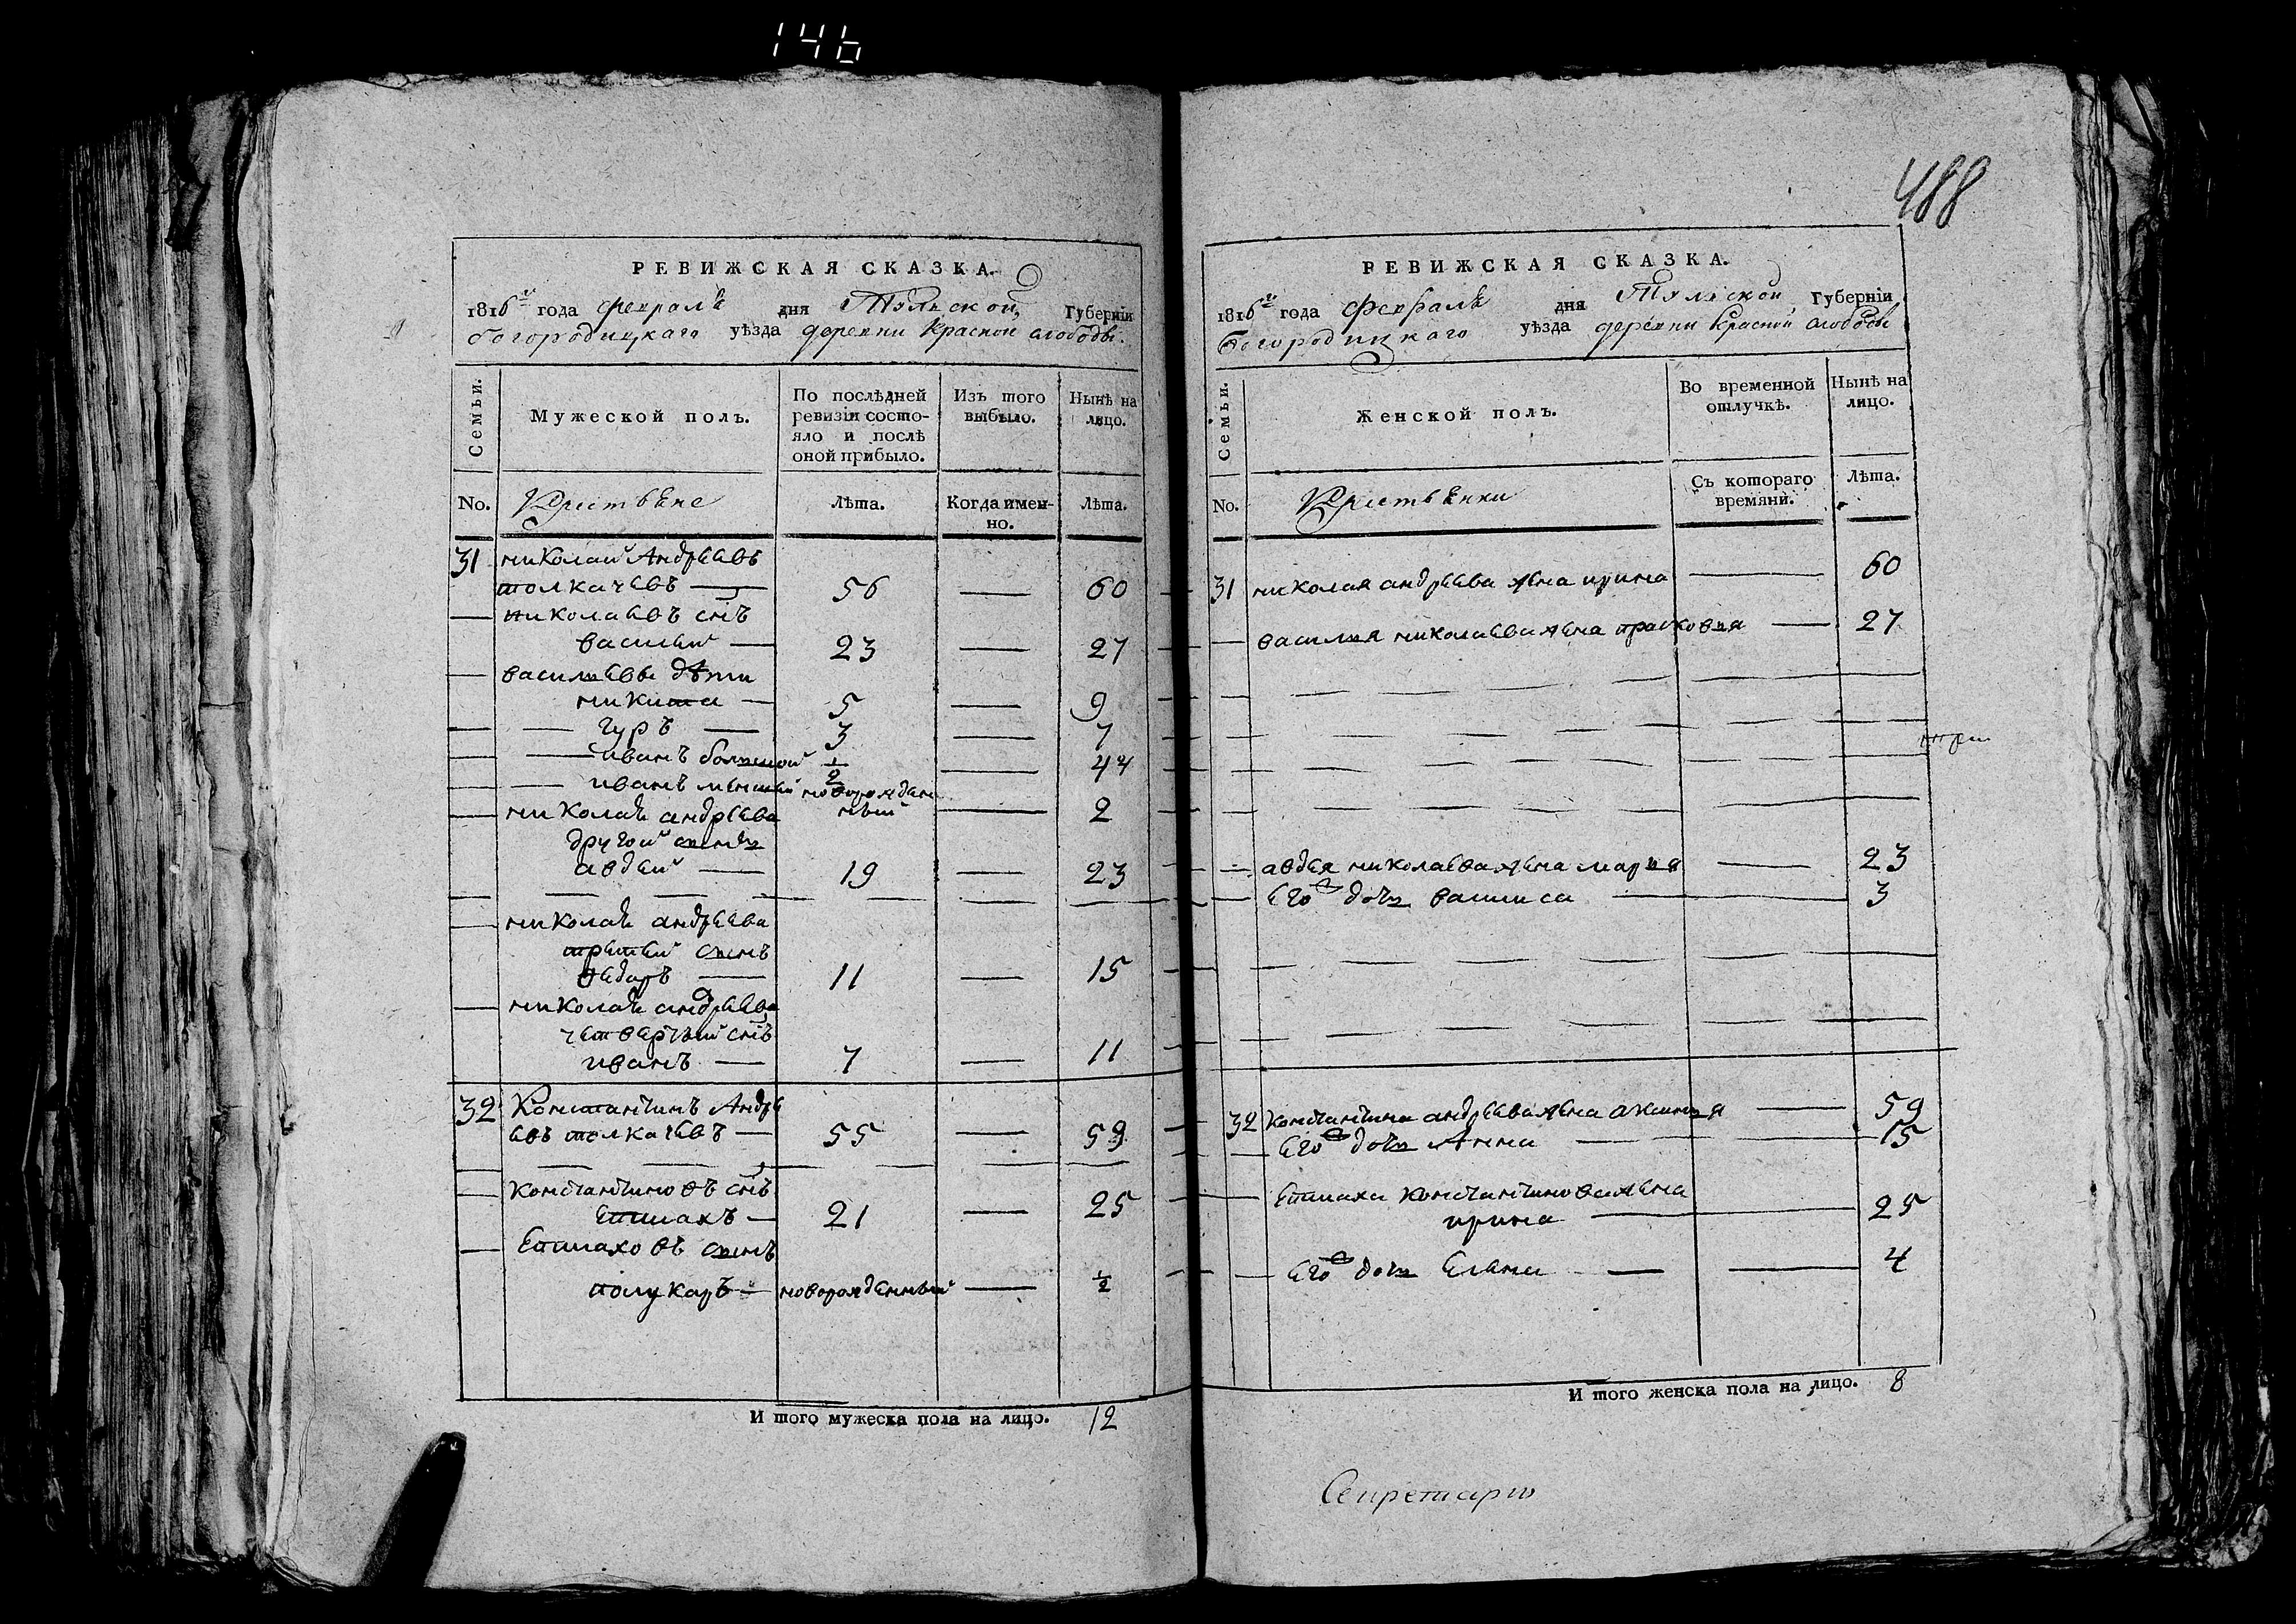 146
488
РЕВИЖСКАЯ СКАЗКА.
1816го года февраля дня Тульской Губерніи
богородицкаго уѣзда деревни Красной слободы.
Семьи.
Мужеской полъ.
По послѣдней ревизіи состояло и послѣ оной прибыло.
Изъ того выбыло.
Нынѣ на лицо.
No.
Крестьяне
Лѣта.
Когда именно.
Лѣта.
31 николай Андреевъ
толкачевъ — 56 — 60
— николаевъ снъ
василий — 23 — 27
— василиевы дѣти
никита — 5 — 9
— — гуръ — 3 — 7
— — иванъ болшой 1/2 — 4 1/2
— — иванъ меншей новорожден
— николая андреева ный — 2
другой сынъ
авдей — 19 — 23
— николая андреева
третей сынъ
федоръ — 11 — 15
— николая андреева
четвертый снъ
иванъ — 7 — 11
32 Константинъ Андре
евъ толкачевъ — 55 — 59
— константиновъ снъ
епимахъ — 21 — 25
— Епимаховъ сынъ
полукаръ — новорожденный — 1/2
И того мужеска пола на лицо. 12
РЕВИЖСКАЯ СКАЗКА.
1816го года февраля дня Тульской Губерніи
богородицкаго уѣзда деревни Красной слободы
Семьи.
Женской полъ.
Во временной отлучкѣ.
Нынѣ на лицо.
No.
Крестьянки
Съ котораго времяни.
Лѣта.
31 николая андреева жена ирина — 60
— василия николаева жена прасковия — 27
— авдея николаева жена мария — 23
— его дочь василиса — 3
32 константина андреева жена аксиния — 59
— его дочь Анна — 15
— епимаха константинова жена
ирина — 25
— его дочь Елена — — 4
И того женска пола на лицо. 8
Секретарь